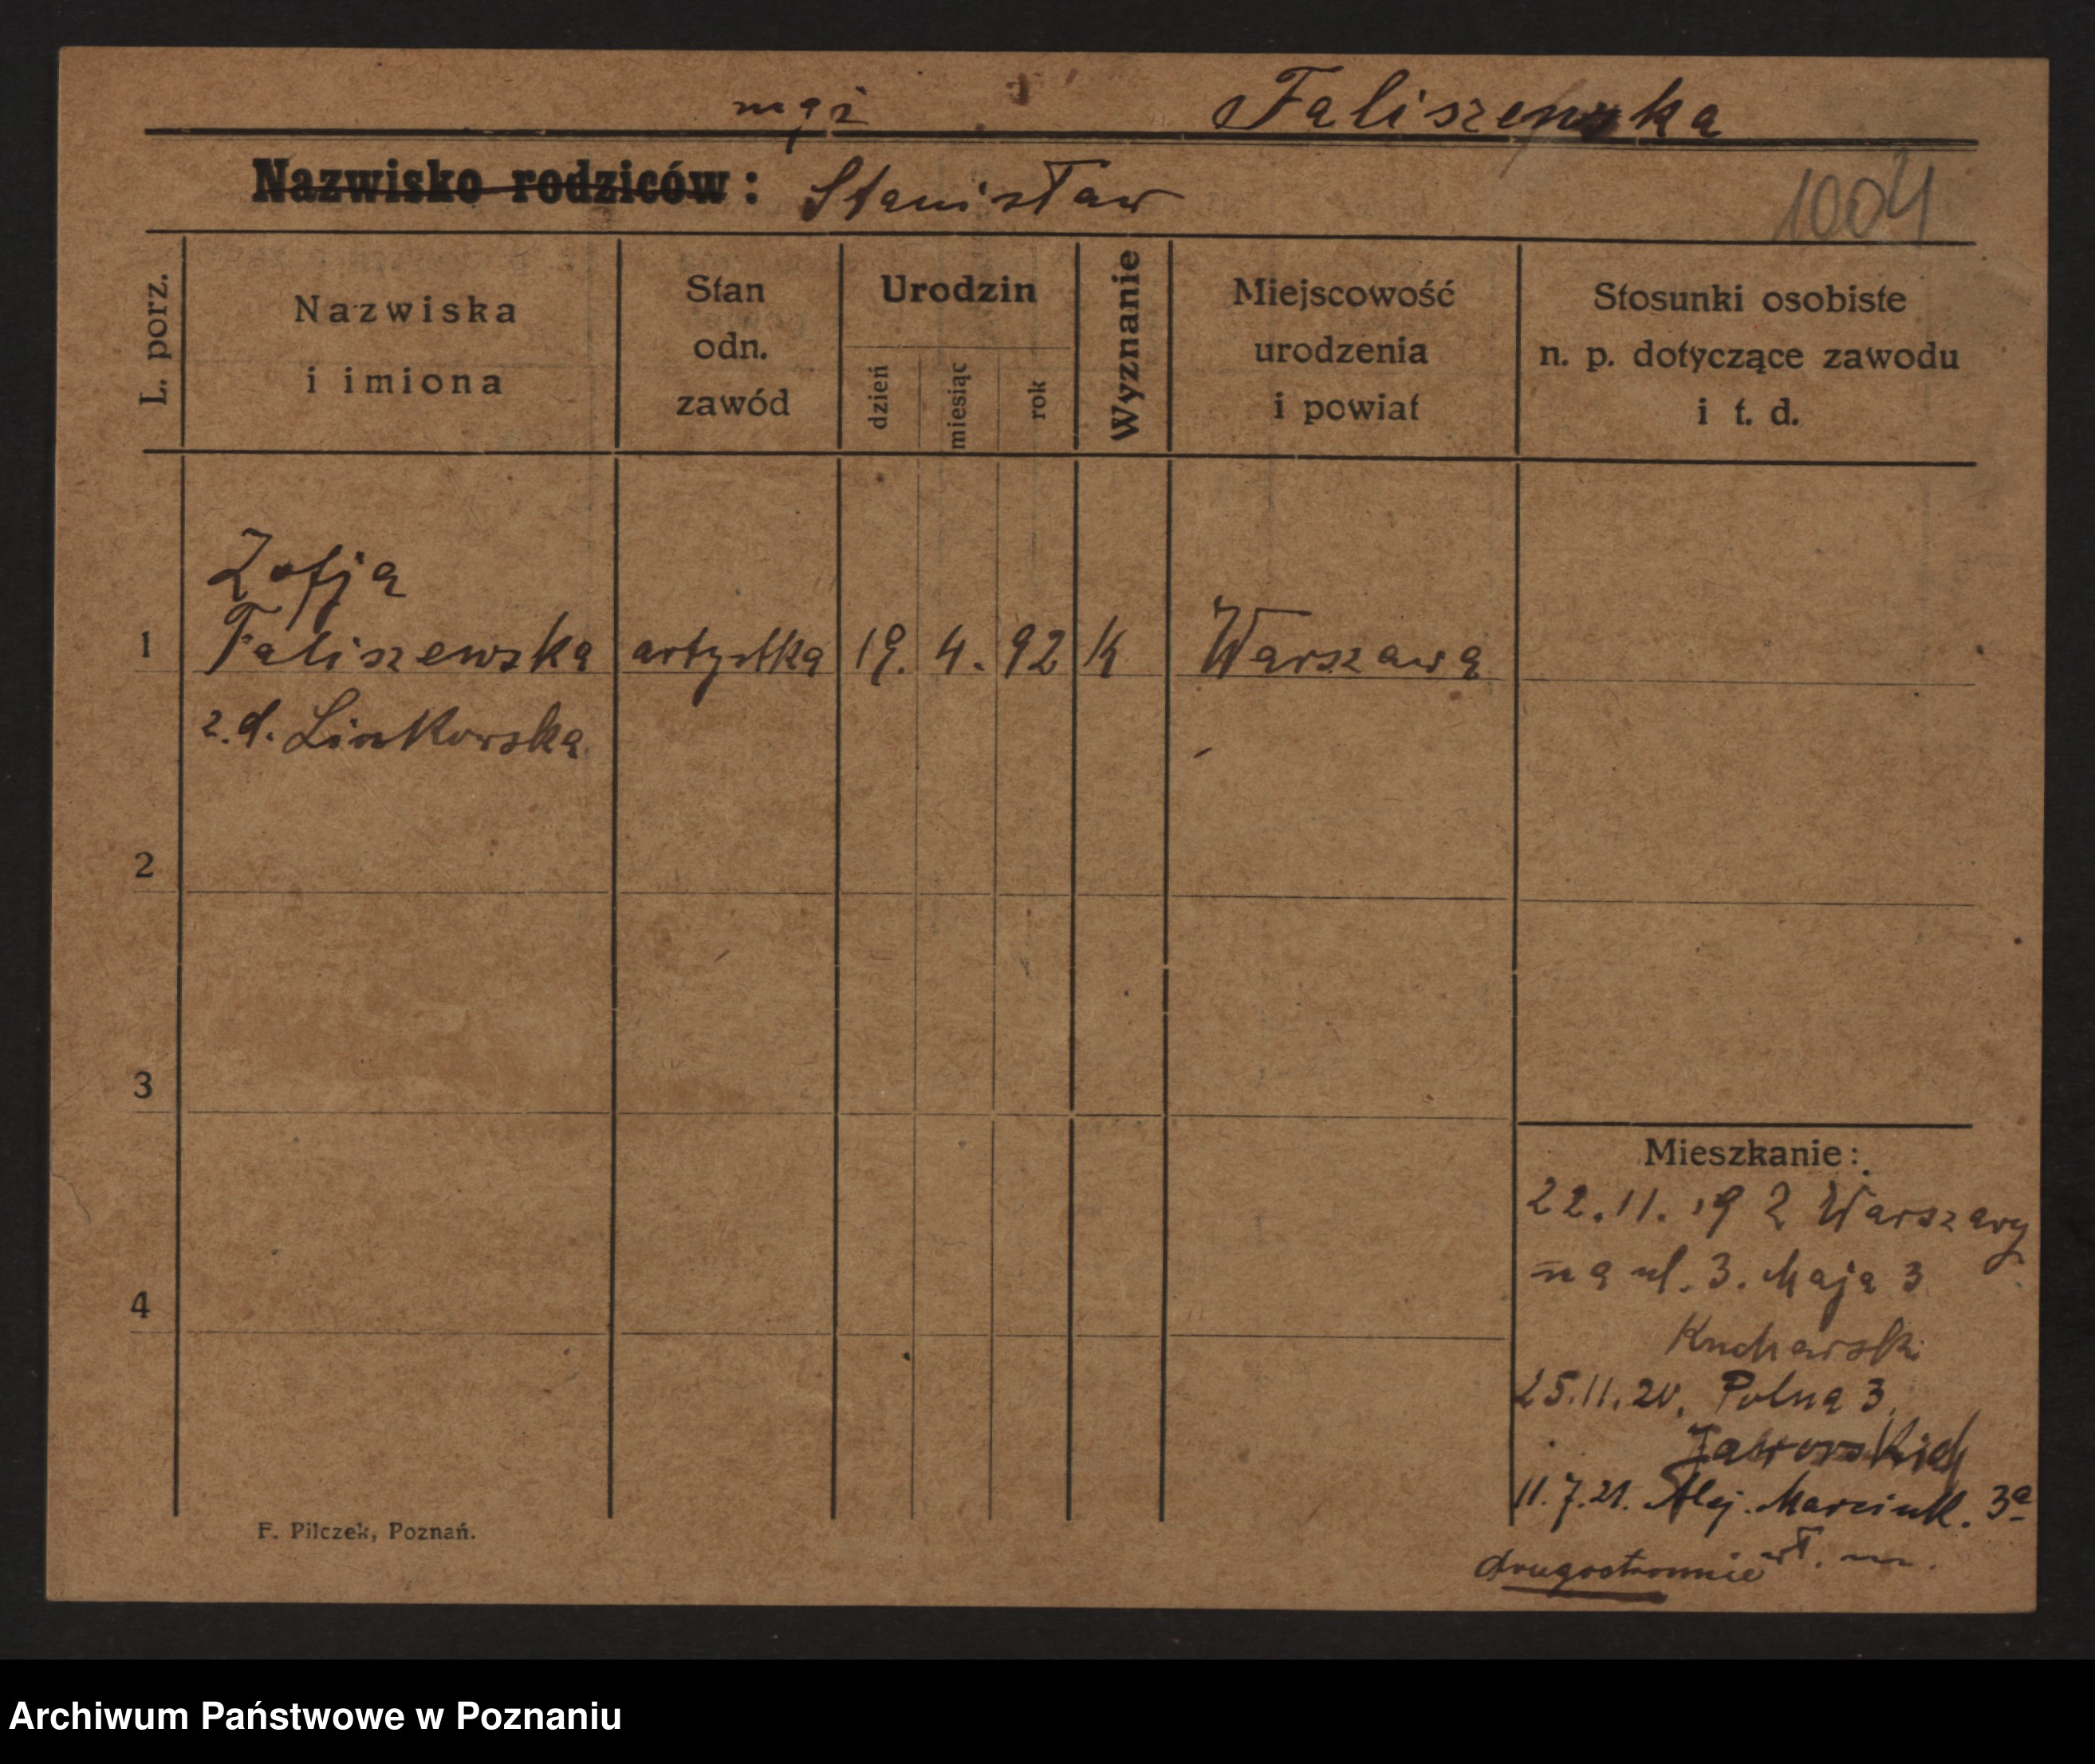 mąż Faliszewska
Nazwisko rodziców: Stanisław
1004
L. porz.
Nazwiska
i imiona
Stan
odn.
zawód
Urodzin
dzień
miesiąc
rok
Wyznanie
Miejscowość
urodzenia
i powiat
Stosunki osobiste
n. p. dotyczące zawodu
i t. d.
Zofja
1 Faliszewska artystka 19. 4. 92 K Warszawa
z.d. Linkowska
2
3
4
Mieszkanie:
22.11.19 z Warszawy
na ul. 3. Maja 3
Kucharski
25.11.20. Polna 3.
Jaworskich
11.7.21. Alej. Marcink. 3a
drugostronnie wł. m.
F. Pilczek, Poznań.
Archiwum Państwowe w Poznaniu